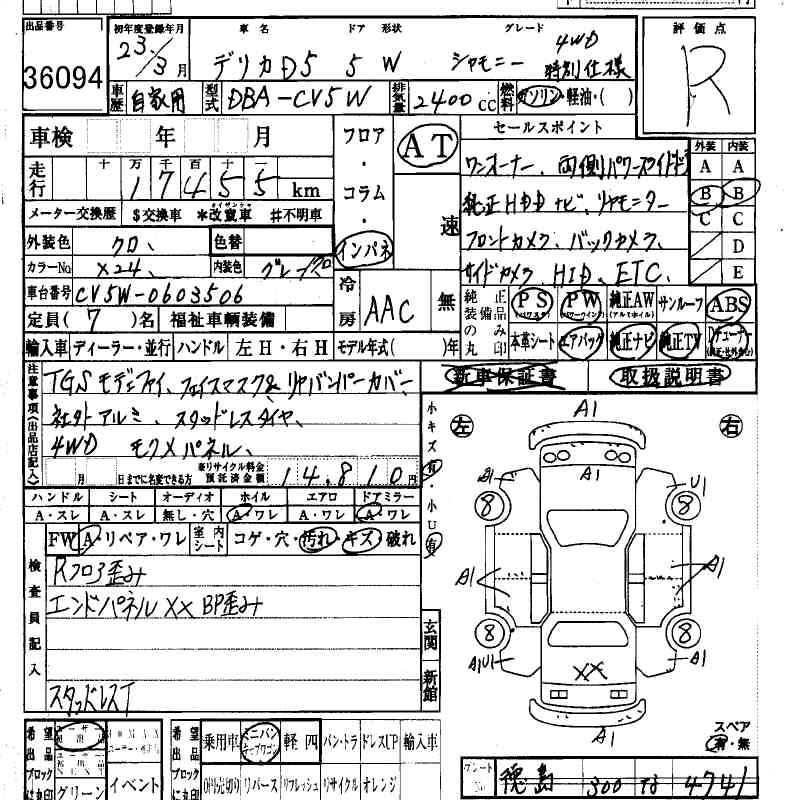 出品番号 初年度登録年月 車名 ドア 形状 グレード 評価点
36094 23.3月 デリカD5 5 W シャモニー 4WD 特別仕様 R
車歴 自家用 型式 DBA-CV5W 排気量 2400cc 燃料 ガソリン・軽油・( )
車検 年 月 フロア・コラム・インパネ AT 速 セールスポイント 外装 内装
走行 十万千百十一 17455 km ワンオーナー、両側パワースライドドア A A
メーター交換歴 $交換車 *改ザン車 #不明車 純正HDDナビ、リヤモニター B B
外装色 クロ、 色替 フロントカメラ、バックカメラ、 C C
カラーNo X24、 内装色 グレー D
サイドカメラ HID、ETC、 E
車台番号 CV5W-0603506 冷房 AAC 無
純正装備品のみ丸印 PS (パワステ) PW (パワーウインド) 純正AW (アルミホイル) サンルーフ ABS
定員(7)名 福祉車輌装備 本革シート エアバッグ 純正ナビ 純正TV
輸入車 ディーラー・並行 ハンドル 左H・右H モデル年式( )年
新車保証書 取扱説明書
注意事項(出品店記入)
TGSモディファイ、フェイスマスク& リヤバンパーカバー
社外アルミ、スタッドレスタイヤ、
4WD モクメパネル、
月 日までに名変できる方 ※リサイクル料金預託済金額 14,810円
ハンドル シート オーディオ ホイル エアロ ドアミラー
A・スレ A・スレ 無し・穴 A・ワレ A・ワレ A・ワレ
FW A・リペア・ワレ 室内シート コゲ・穴・汚れ・キズ・破れ
検査員記入
Rフロア歪み
エンドパネルXX BP歪み
スタッドレスT
玄関
新館
小キズ有・小U有
左 A1 右
A1 A1 U1
8 8
A1 A1
8 8
A1U1 XX A1
A1
スペア
有・無
希望出品ブロックに丸印 グリーン イベント
希望出品ブロックに丸印 乗用車 ミニバン 軽四 バン・トラ ドレスUP 輸入車
0円売切り リバース リフレッシュ リサイクル オレンジ
徳島 300 な 4741